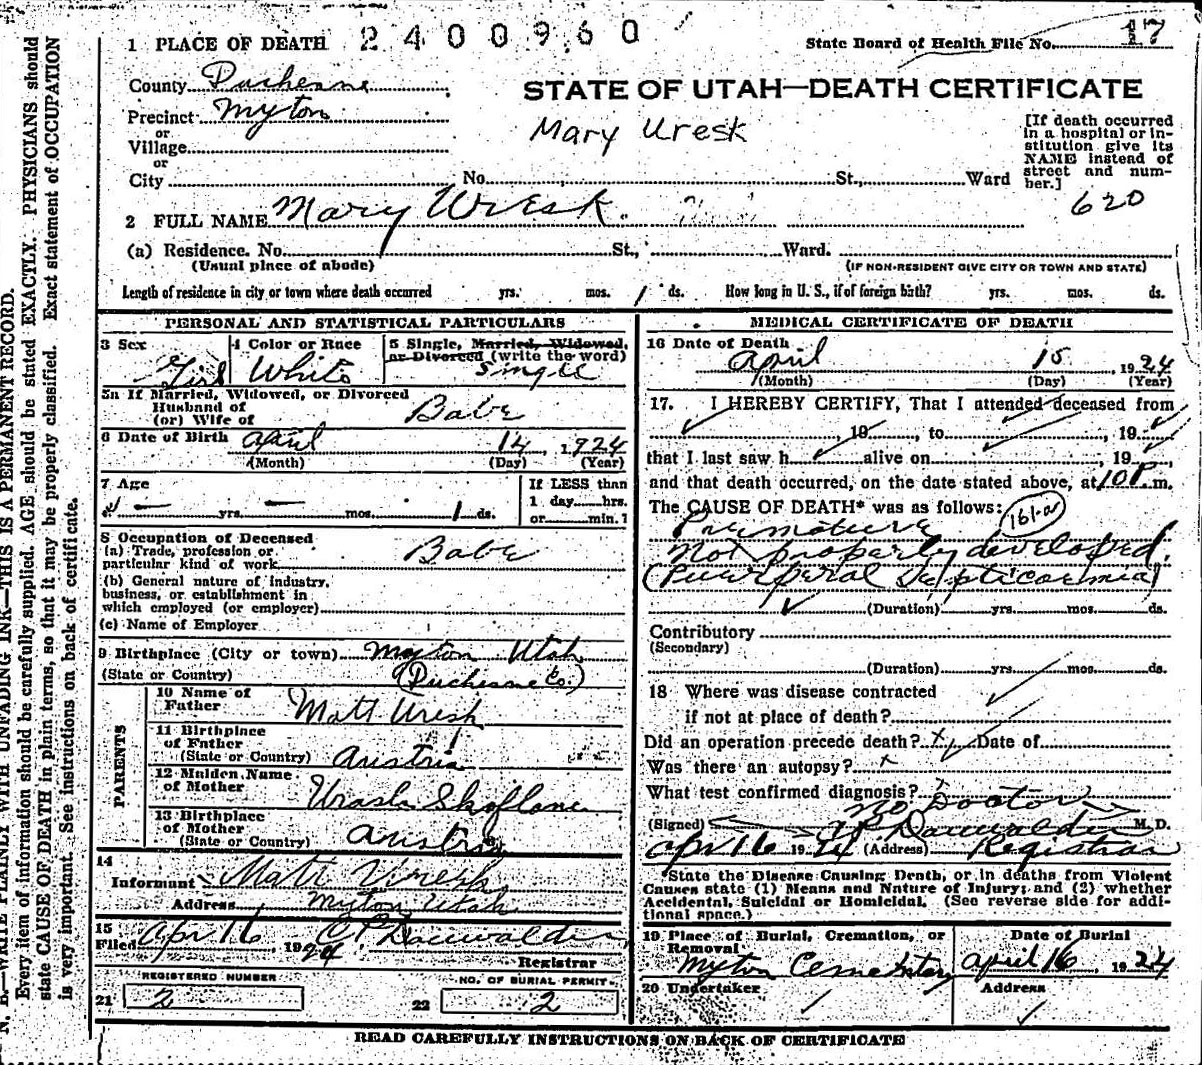 1 PLACE OF DEATH 2400960
State Board of Health File No. 17
County Duchesne
STATE OF UTAH—DEATH CERTIFICATE
Precinct Myton
Mary Uresk
or
Village
or
City No. St., Ward
[If death occurred
in a hospital or in-
stitution give its
NAME instead of
street and num-
ber.]
620
2 FULL NAME Mary Uresk.
(a) Residence. No. St., Ward.
(Usual place of abode)
(IF NON-RESIDENT GIVE CITY OR TOWN AND STATE)
Length of residence in city or town where death occurred yrs. mos. 1 ds. How long in U. S., if of foreign birth? yrs. mos. ds.
PERSONAL AND STATISTICAL PARTICULARS
3 Sex Girl
4 Color or Race White
5 Single, Married, Widowed,
or Divorced (write the word)
Single
5a If Married, Widowed, or Divorced
Husband of
(or) Wife of Babe
6 Date of Birth April 14, 1924
(Month) (Day) (Year)
7 Age — yrs. — mos. 1 ds.
If LESS than
1 day hrs.
or min.
8 Occupation of Deceased
(a) Trade, profession or
particular kind of work Babe
(b) General nature of industry,
business, or establishment in
which employed (or employer)
(c) Name of Employer
9 Birthplace (City or town) Myton Utah
(State or Country) (Duchesne Co.)
PARENTS
10 Name of
Father Matt Uresk
11 Birthplace
of Father
(State or Country) Austria
12 Maiden Name
of Mother Ursula Skoflanc
13 Birthplace
of Mother
(State or Country) Austria
14
Informant Matt Uresk
Address Myton Utah
15
Filed Apr 16 1924. Dauwalder
Registrar
REGISTERED NUMBER
21 2
NO. OF BURIAL PERMIT.
22 2
MEDICAL CERTIFICATE OF DEATH
16 Date of Death
April 15, 1924
(Month) (Day) (Year)
17. I HEREBY CERTIFY, That I attended deceased from
, 19 , to , 19
that I last saw h alive on , 19 ,
and that death occurred, on the date stated above, at 10 P. m.
The CAUSE OF DEATH* was as follows: 161-a
Premature
Not properly developed.
(Puerperal Septicaemia)
(Duration) yrs. mos. ds.
Contributory
(Secondary)
(Duration) yrs. mos. ds.
18 Where was disease contracted
if not at place of death?
Did an operation precede death? x Date of
Was there an autopsy? x
What test confirmed diagnosis?
No Doctor
(Signed) Dauwalder M. D.
Apr 16 1924 (Address) Registrar
*State the Disease Causing Death, or in deaths from Violent
Causes state (1) Means and Nature of Injury; and (2) whether
Accidental, Suicidal or Homicidal. (See reverse side for addi-
tional space.)
19 Place of Burial, Cremation, or
Removal
Myton Cementary
Date of Burial
April 16, 1924
20 Undertaker
Address
READ CAREFULLY INSTRUCTIONS ON BACK OF CERTIFICATE
N. B.—WRITE PLAINLY WITH UNFADING INK—THIS IS A PERMANENT RECORD.
Every item of information should be carefully supplied. AGE should be stated EXACTLY. PHYSICIANS should
state CAUSE OF DEATH in plain terms, so that it may be properly classified. Exact statement of OCCUPATION
is very important. See instructions on back of certificate.